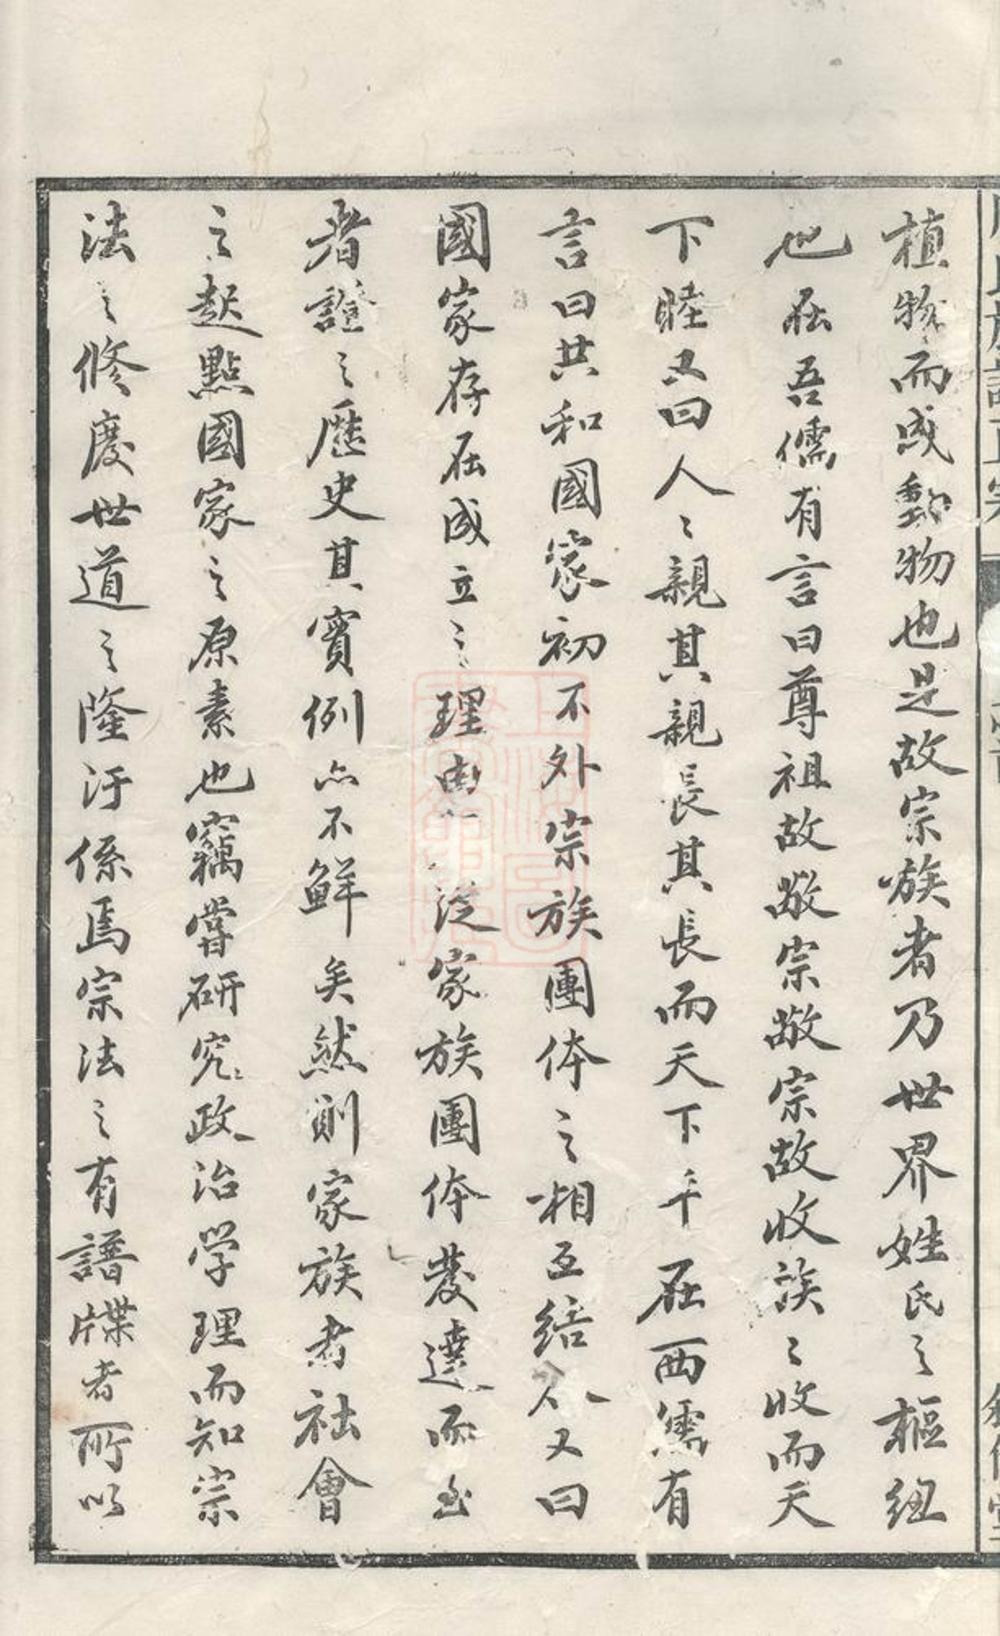 植物而成動物也是故宗族者乃世界姓氏之樞紐
也在吾儒有言曰尊祖故敬宗敬宗故收族〻收而天
下睦又曰人〻親其親長其長而天下平在西儒有
言曰共和國家初不外宗族團体之相互結合又曰
國家存在成立之理由 從家族團体發達而至
者證之歷史其實例亦不鮮矣然則家族者社會
之起點國家之原素也竊嘗研究政治学理而知宗
法之修廢世道之隆汙係焉宗法之有譜牒者所以